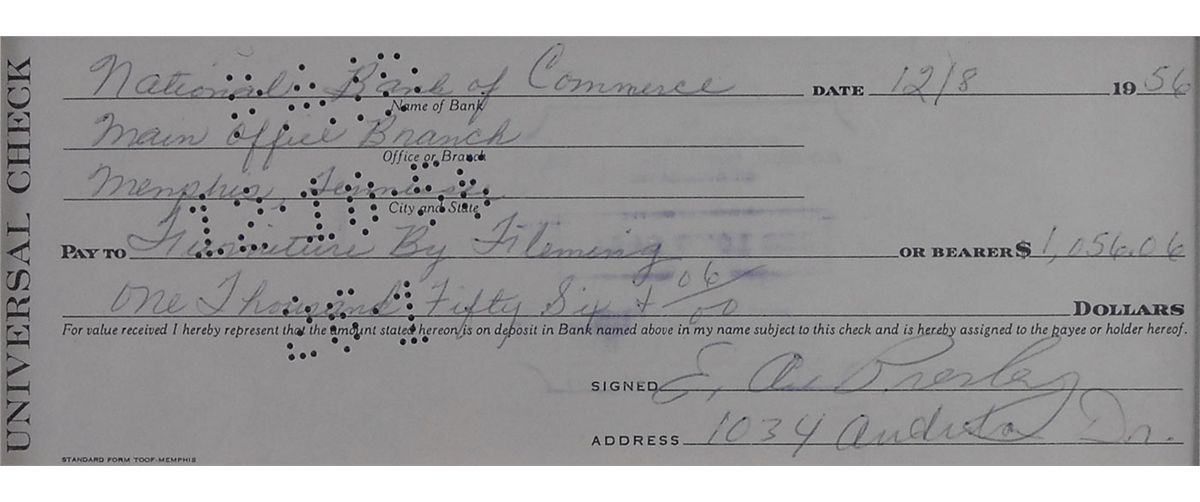 UNIVERSAL CHECK
National Bank of Commerce DATE 12/8 1956
Name of Bank
Main Office Branch
Office or Branch
Memphis, Tennessee
City and State
12-10-56
PAY TO Furniture By Fleming OR BEARER $ 1,056.06
One Thousand Fifty Six + 06/00 DOLLARS
For value received I hereby represent that the amount stated hereon is on deposit in Bank named above in my name subject to this check and is hereby assigned to the payee or holder hereof.
SIGNED E. A. Presley
ADDRESS 1034 Audubon Dr.
STANDARD FORM TOOF-MEMPHIS